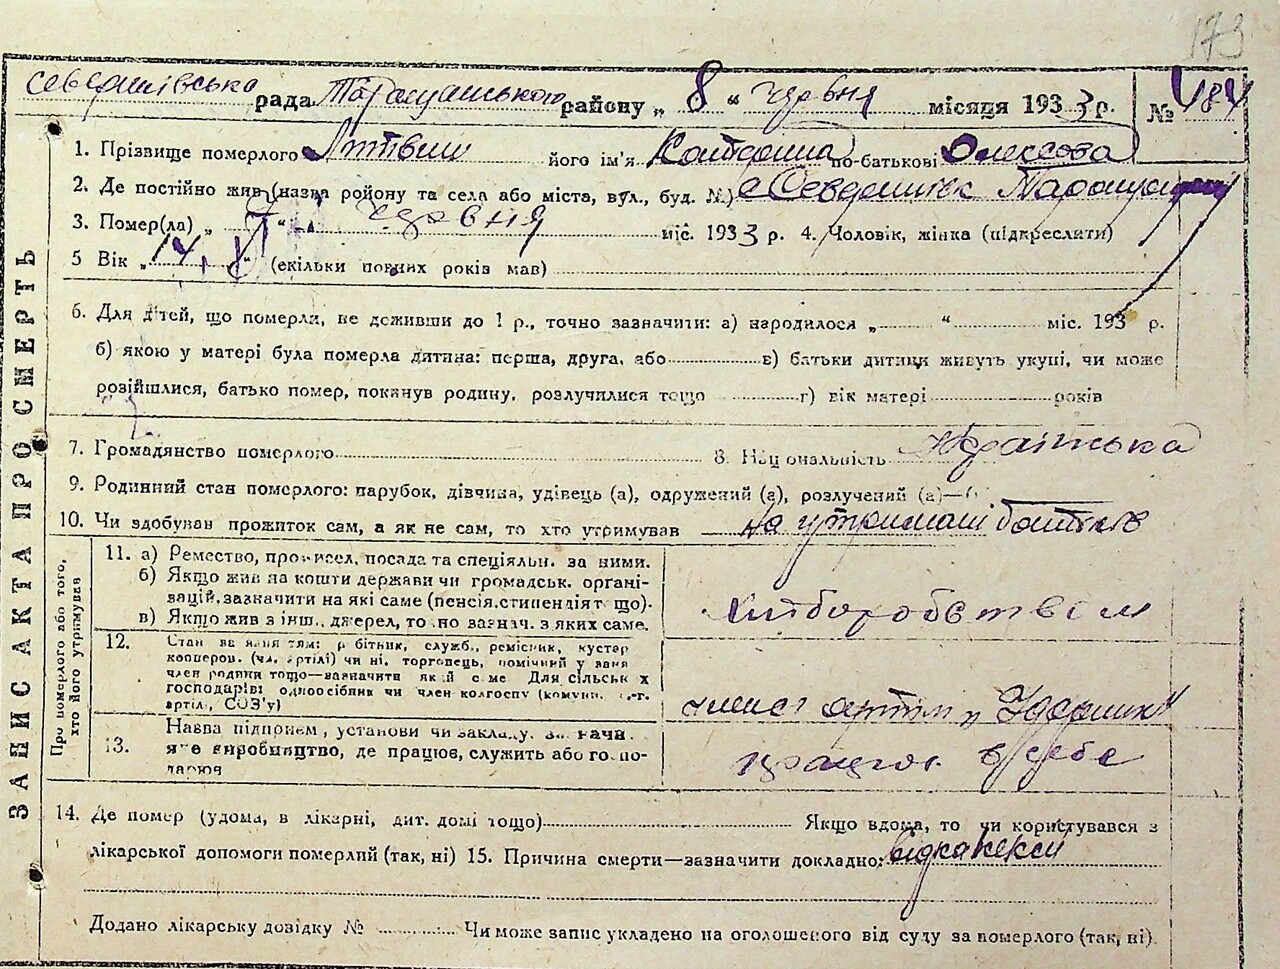 173
Северинівська рада Таращанського району „ 8 “ червня місяця 1933 р. № 484
1. Прізвище померлого Литвин його ім'я Катерина по-батькові Олексова
2. Де постійно жив (назва ройону та села або міста, вул., буд. №) с Северинівк Таращан
3. Помер(ла) „ 7 “ червня міс. 1933 р. 4. Чоловік, жінка (підкреслити)
5 Вік „ 14, “ (екільки повних років мав)
6. Для дітей, що померли, не доживши до 1 р., точно зазначити: а) народилося „ “ міс. 193 р.
б) якою у матері була померла дитина: перша, друга, або в) батьки дитини живуть укупі, чи може
розійшлися, батько помер, покинув родину, розлучилися тощо г) вік матері років
7. Громадянство померлого 8. Національність Українська
9. Родинний стан померлого: парубок, дівчина, удівець (а), одружений (а), розлучений (а)—
10. Чи здобував прожиток сам, а як не сам, то хто утримував на утримані батьків
ЗАПИС АКТА ПРО СМЕРТЬ
Про померлого або того, хто його утримував
11. а) Ремество, промисел, посада та спеціяльн. за ними.
б) Якщо жив на кошти держави чи громадськ. органі-
вацій, зазначити на які саме (пенсія, стипендіят що).
в) Якщо жив з інш. джерел, то но зазнач. з яких саме.
хліборобством
12. Стан ва няття тям: р бітник, служб., ремісник, кустар
кооперов. (чл. артілі) чи ні, торговець, помічний у ваня
член родини тощо—зазначити як й с ме Для сільськ х
господарів: одноосібник чи член колгоспу (комуни, т.-г.
артіл, СОЗ'у)
член артіли „Ударник“
13. Назва підприєм., установи чи закладу, за начи
яке виробництво, де працює, служить або го по-
дарює
працює в себе
14. Де помер (удома, в лікарні, дит. домі тощо) Якщо вдома, то чи користувався з
лікарської допомоги померлий (так, ні) 15. Причина смерти—зазначити докладно: від кахексії
Додано лікарську довідку № Чи може запис укладено на оголошеного від суду за померлого (так, ні)